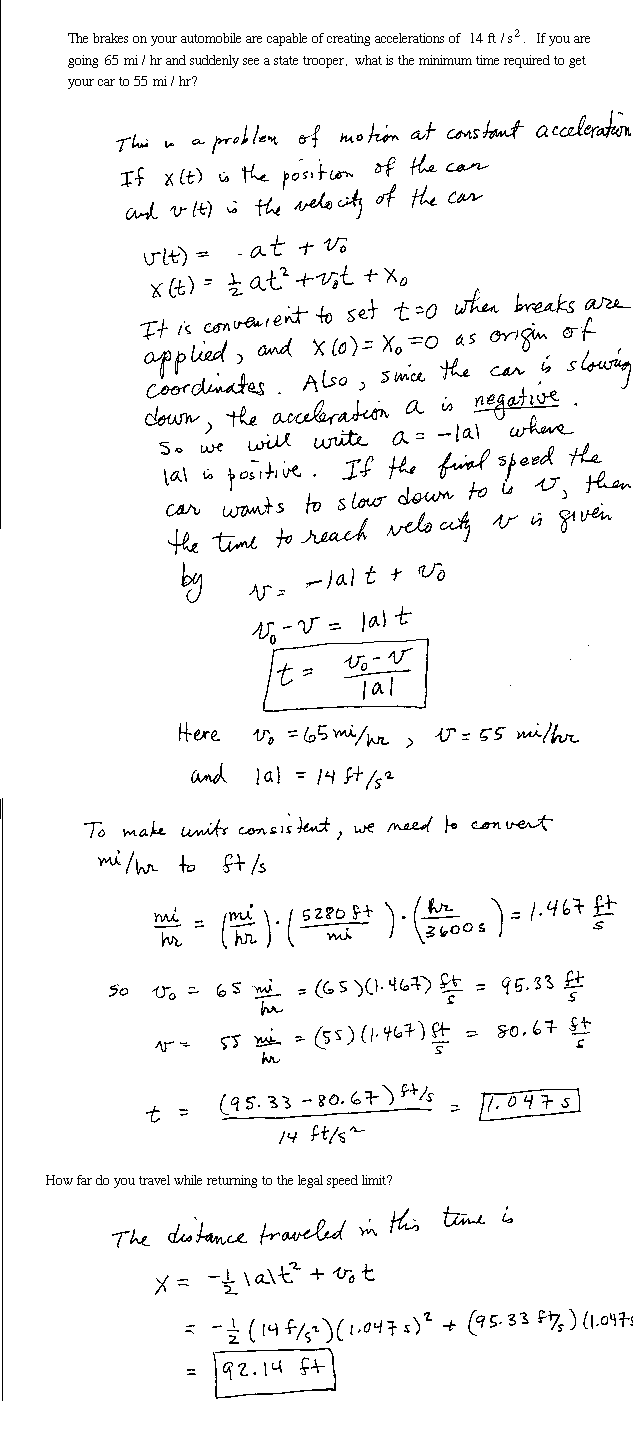 The brakes on your automobile are capable of creating accelerations of 14 ft / s². If you are
going 65 mi / hr and suddenly see a state trooper, what is the minimum time required to get
your car to 55 mi / hr?
This is a problem of motion at constant acceleration
If x(t) is the position of the car
and v(t) is the velocity of the car
v(t) = at + v₀
x(t) = ½ at² + v₀t + x₀
It is convenient to set t=0 when breaks are
applied, and x(0) = x₀ = 0 as origin of
coordinates. Also, since the car is slowing
down, the acceleration a is negative.
So we will write a = -|a| where
|a| is positive. If the final speed the
car wants to slow down to is v, then
the time to reach velocity v is given
by v = -|a| t + v₀
v₀ - v = |a| t
t = (v₀ - v)/|a|
Here v₀ = 65 mi/hr, v = 55 mi/hr
and |a| = 14 ft/s²
To make units consistent, we need to convert
mi/hr to ft/s
mi/hr = (mi/hr)·(5280 ft/mi)·(hr/3600 s) = 1.467 ft/s
so v₀ = 65 mi/hr = (65)(1.467) ft/s = 95.33 ft/s
v = 55 mi/hr = (55)(1.467) ft/s = 80.67 ft/s
t = (95.33 - 80.67) ft/s / 14 ft/s² = 1.047 s
How far do you travel while returning to the legal speed limit?
The distance traveled in this time is
x = -½ |a|t² + v₀t
= -½ (14 f/s²)(1.047 s)² + (95.33 ft/s)(1.047s
= 92.14 ft